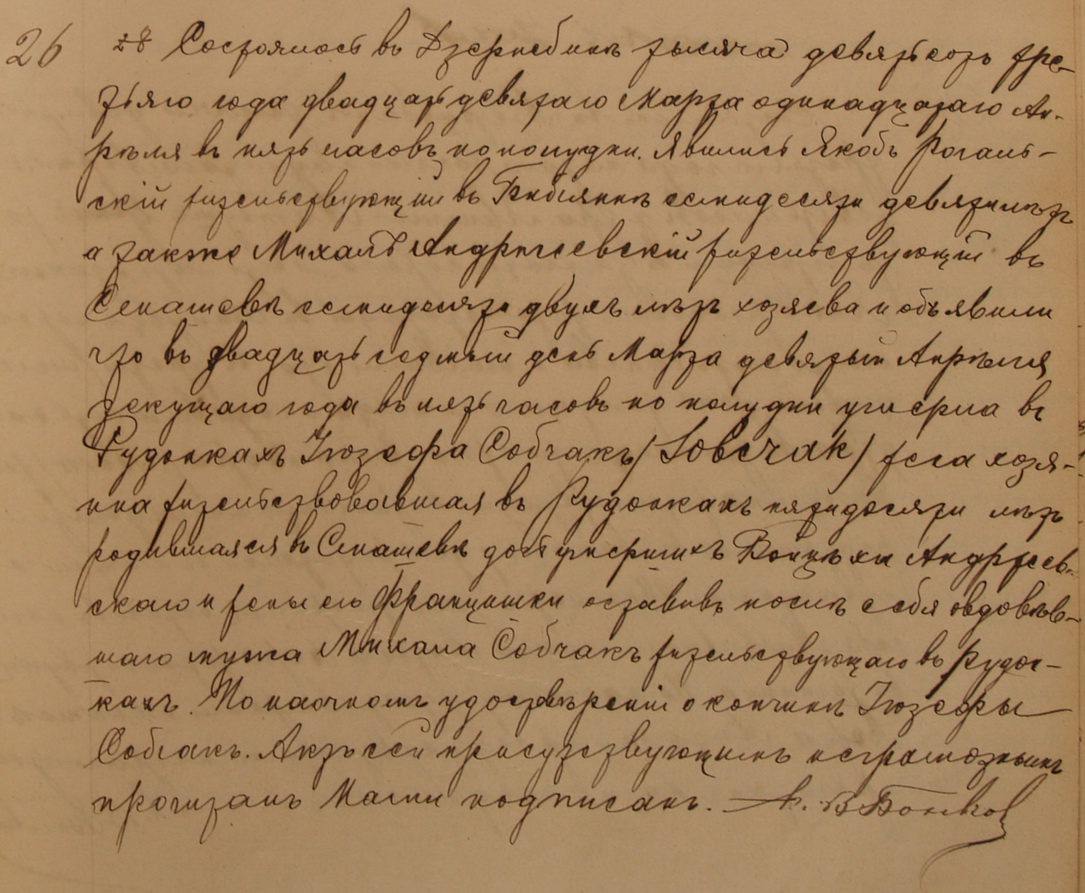 26
28 Состоялось въ Дзержбинѣ тысяча девятьсотъ тре-
тьяго года двадцать девятаго Марта одинадцатаго Ап-
рѣля въ пять часовъ по полудни. Явились Якобъ Рогаль-
скій жительствующій въ семидесяти девяти лѣтъ
а также Михалъ Андржеевскій жительствующій въ
Сепашевѣ семидесяти двухъ лѣтъ хозяева и объявили
что въ двадцать седмый день Марта девятый Апрѣля
текущаго года въ пять часовъ по полудни умерла въ
Рудонкахъ Іюзефа Собчакъ /Sobczak/ жена хозя-
ина жительствовавшая въ Рудонкахъ пятидесяти лѣтъ
родившаяся въ Сепашевѣ дочь умершихъ Войцѣха Андржеев-
скаго и жены его Францишки оставивъ послѣ себя овдовѣв-
шаго мужа Михала Собчакъ жительствующаго въ Рудон-
кахъ. По наочномъ удоствѣреніи о кончинѣ Іюзефы
Собчакъ. Актъ сей присутствующимъ неграмотнымъ
прочитанъ Нами подписанъ.